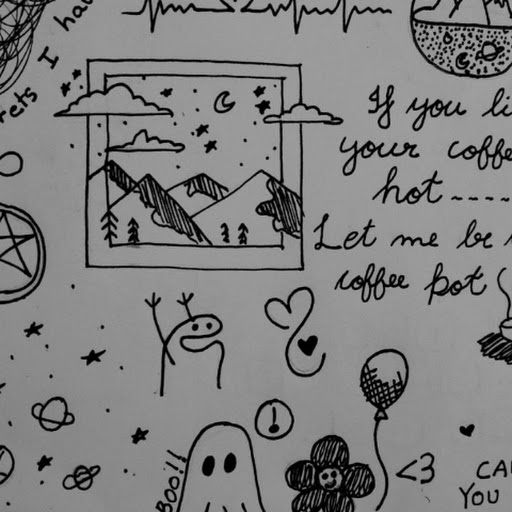 rets I hav
If you li
your coffe
hot-----
Let me be
coffee pot
BOO!!
<3
CA
YOU